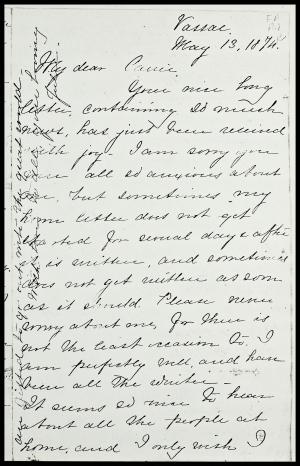 Vassar
May 13, 1874.
My dear Carrie,
Your nice long
letter, containing so much
news, has just been received
with joy. I am sorry you
were all so anxious about
me, but sometimes my
home letter does not get
started for several days after
it is written, and sometimes
does not get written as soon
as it should. Please never
worry about me, for there is
not the least occasion to. I
am perfectly well, and have
been all the winter –
It seems so nice to hear
about all the people at
home, and I only wish